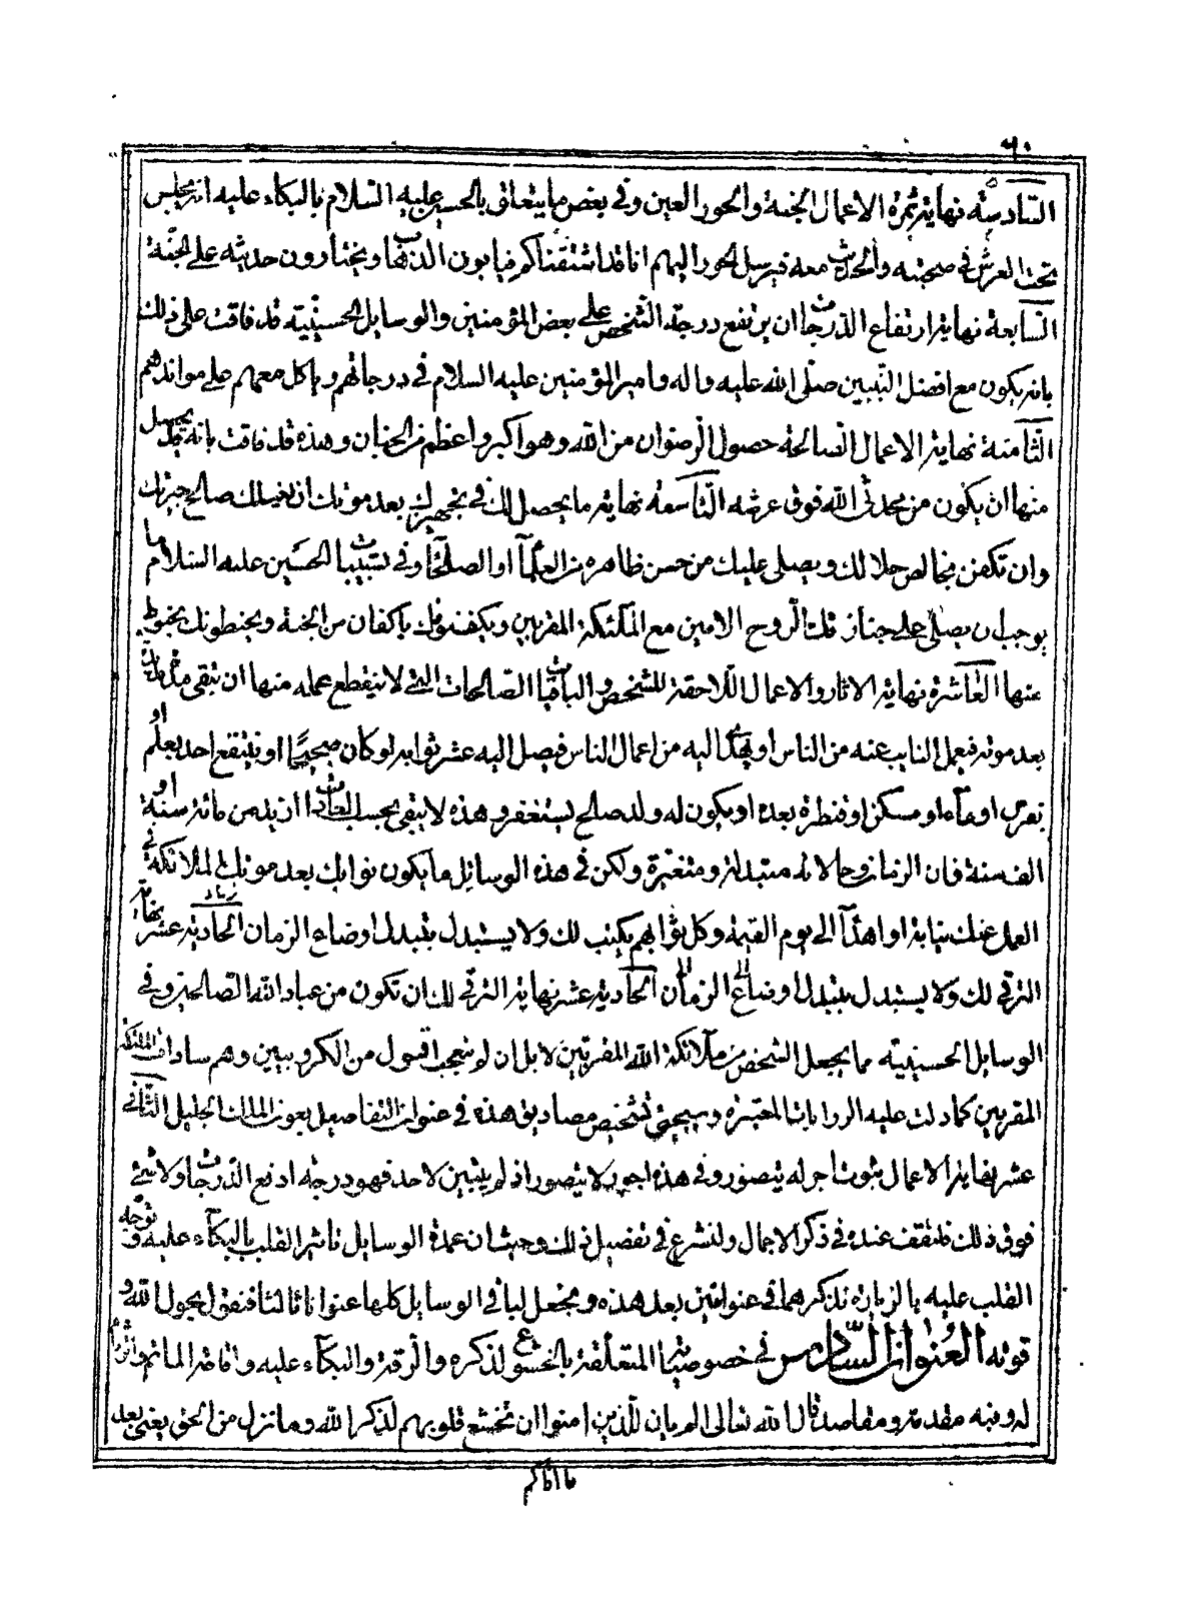 ٦٠
السادسة نهاية ثمرة الاعمال الجنة والحور العين وفي بعض ما يتعلق بالحسين عليه السلام بالبكاء عليه انه يجلس
تحت العرش في صحبته والحديث معه فيرسل الحور اليهم انا قد اشتقناكم فيابون الذهاب ويختارون حديثه على الجنة
السابعة نهاية ارتفاع الدرجات ان يرتفع درجة الشخص على بعض المؤمنين والوسايل الحسينية قد فاقت على ذلك
بانه يكون مع افضل النبيين صلى الله عليه واله وامير المؤمنين عليه السلام في درجاتهم وياكل معهم على موائدهم
الثامنة نهاية الاعمال الصالحة حصول الرضوان من الله وهو اكبر واعظم من الجنان وهذه قد فاقت بانه قد يحصل
منها ان يكون من محدثي الله فوق عرشه التاسعة نهاية ما يحصل لك في تجهيزك بعد موتك ان يغسلك صالح جيرتك
وان تكفن بخالص حلالك ويصلي عليك من حسن ظاهره من العلماء او الصلحاء وفي تسبيبات الحسين عليه السلام ما
يوجب ان يصلى على جنازتك الروح الامين مع الملئكة المقربين ويكفنونك باكفان من الجنة ويحنطونك بحنوط
منها العاشرة نهاية الاثار والاعمال اللاحقة للشخص والباقيات الصالحات التي لا ينقطع عمله منها ان تبقى
بعد موته فيعمل النايب عنه من الناس او يهدى اليه من اعمال الناس فيصل اليه عشر ثوابه لو كان صحيحا او ينتفع احد بعلم او
بغرس او ماء او مسكن او قنطرة بعده او يكون له ولد صالح يستغفر وهذه لا تبقى بحسب العادات ازيد من مائة سنة او
الف سنة فان الزمان وحالاته متبدلة ومتغيرة ولكن في هذه الوسايل ما يكون نوابك بعد موتك الملائكة في
العمل عنك نيابة او اهداء الى يوم القيمة وكل ثوابهم يكتب لك ولا يستبدل بتبدل اوضاع الزمان الحادية عشر نهاية
زياد
الترقي لك ولا يستبدل بتبدل اوضاع الزمان الحادية عشر نهاية الترقي لك ان تكون من عباد الله الصالحين وفي
الوسايل الحسينية مما يجعل الشخص من ملائكة الله المقربين لا بل ان لو شيعت اقول من الكروبيين وهم سادات الملئكة
المقربين كما دلت عليه الروايات المعتبرة وسيجئ تشخيص مصاديق هذه في عنوان التفاصيل بعون الملك الجليل الثاني
عشر نهاية الاعمال ثبوت اجر له يتصور وفي هذه اجور لا يتصور اذ لم يتبين لاحد فهو درجة ارفع الدرجات ولا شئ
فوق ذلك فلنقف عنده في ذكر الاجمال ولنشرع في تفصيل ذلك وحيث ان عمدة الوسايل تاثير القلب بالبكاء عليه وتوجه
القلب عليه بالزيارة نذكرهما في عنوانين بعد هذه ونجعل لباقي الوسايل كلها عنوانا ثالثا فنقول بحول الله و
قوته العنوان السادس في خصوصياته المتعلقة بالخشوع لذكره والرقة والبكاء عليه واقامة الماتم
له وفيه مقدمة ومقاصد قال الله تعالى الم يان للذين امنوا ان تخشع قلوبهم لذكر الله وما نزل من الحق يعني بعد